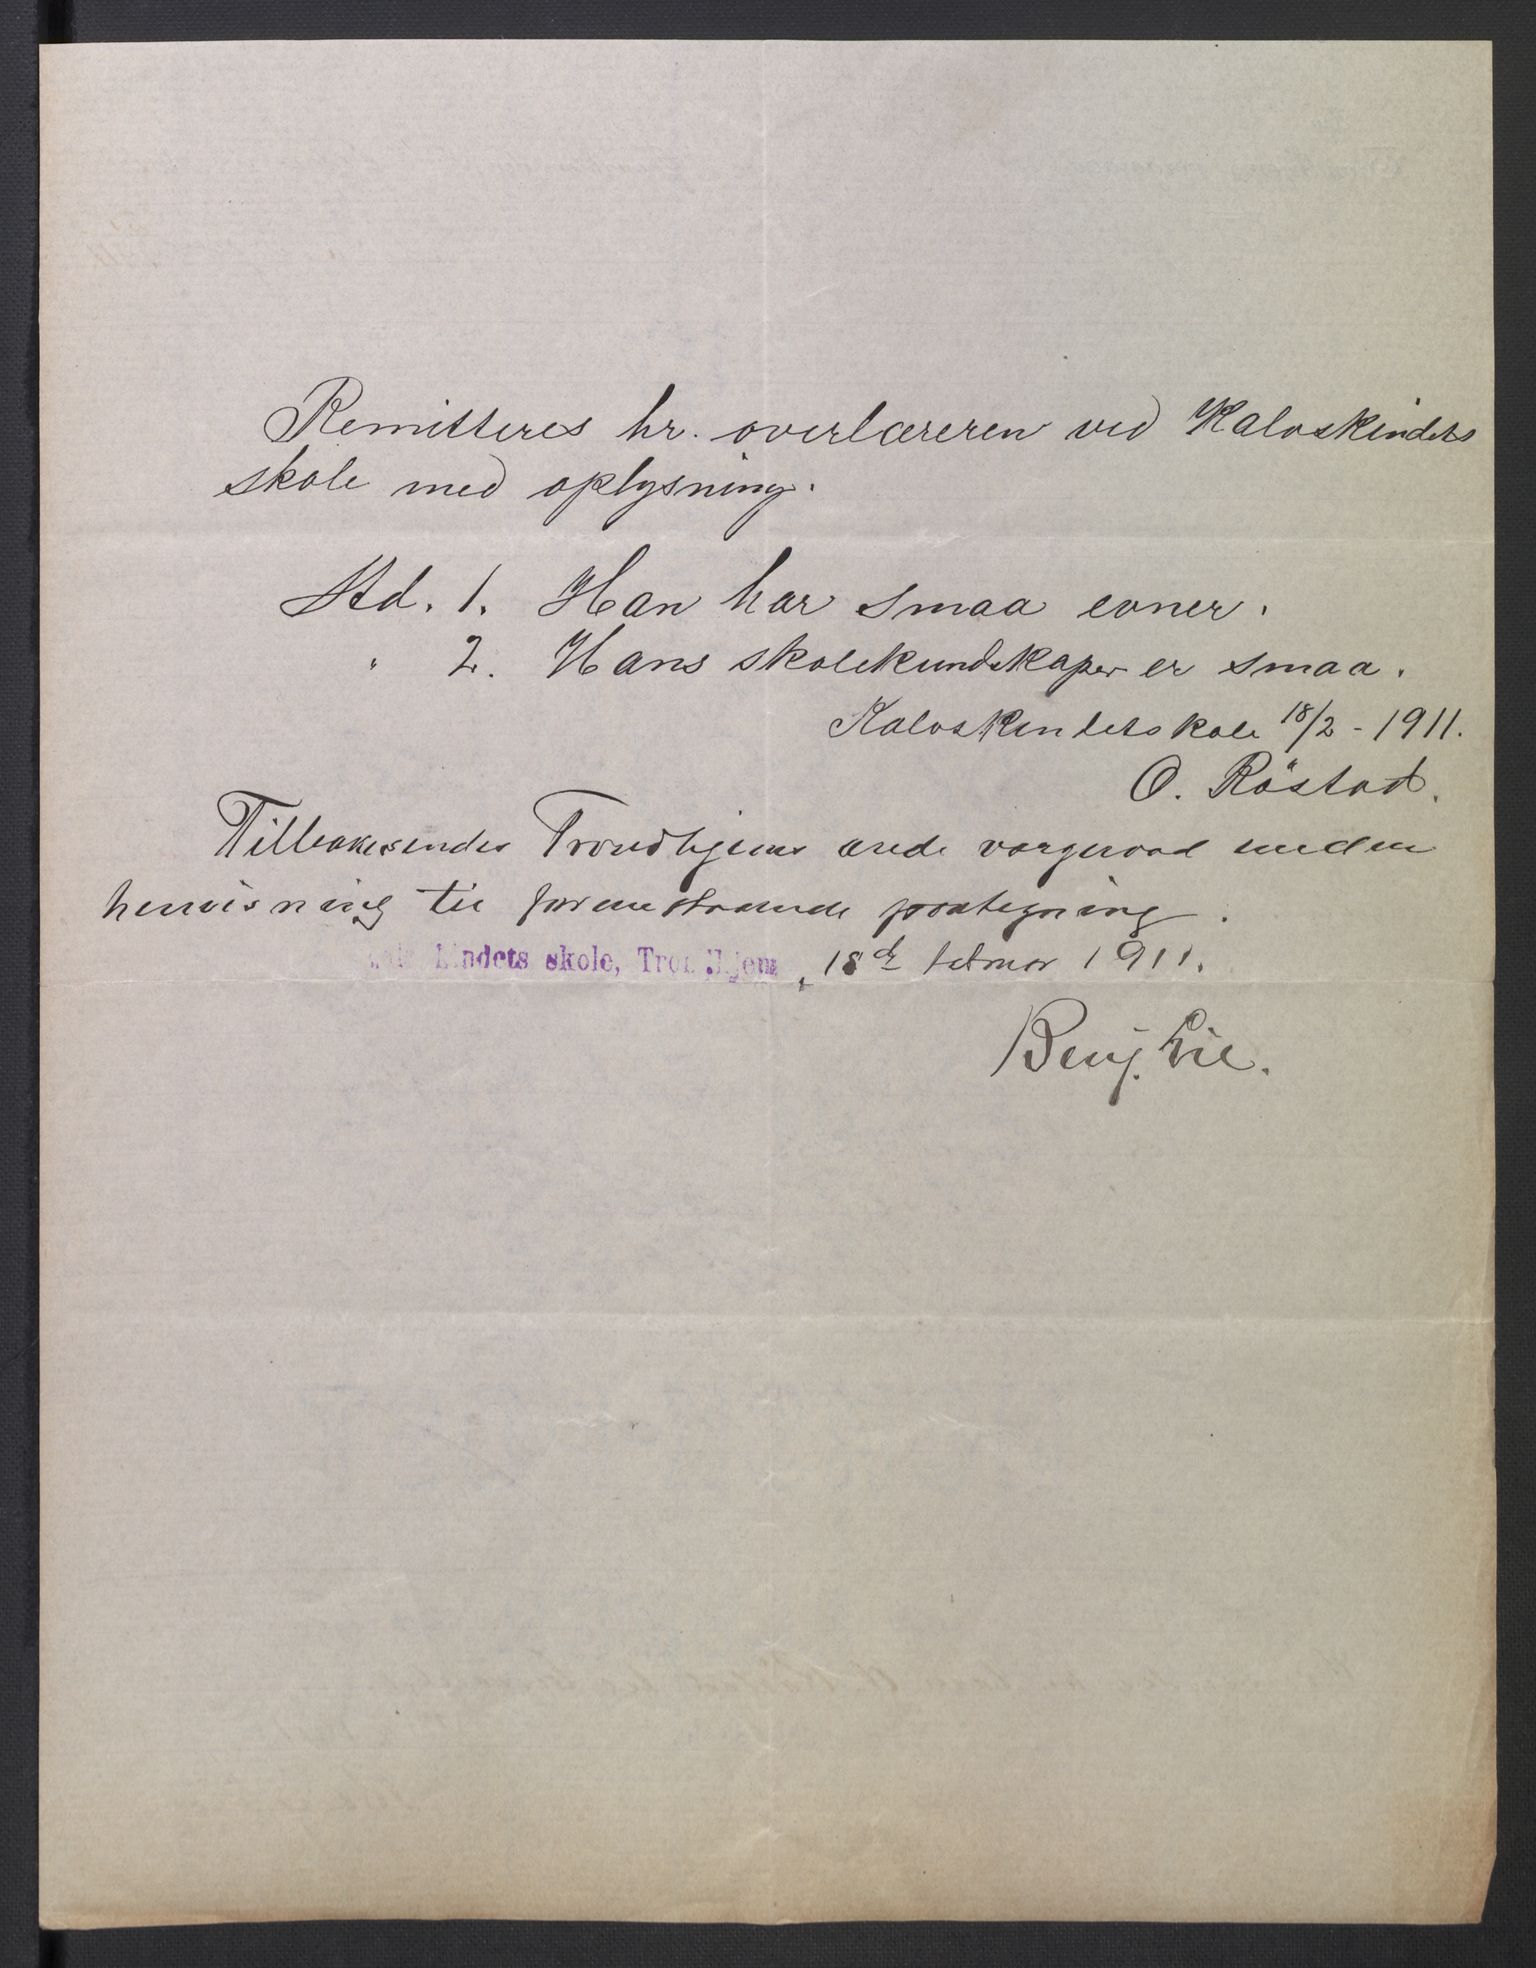 Remitteres hr. overlæreren ved Kalvskindets
skole med oplysning.
Ad. 1. Han har smaa evner.
" 2. Hans skolekundskaper er smaa.
Kalvskindets skole 18/2 - 1911.
O. Röstad.
Tilbakesendes Trondhjems 3rede vergeraad under
henvisning til foranstaaende paategning.
Kalvskindets skole, Trondhjem, 18de februar 1911.
Benj. Lie.